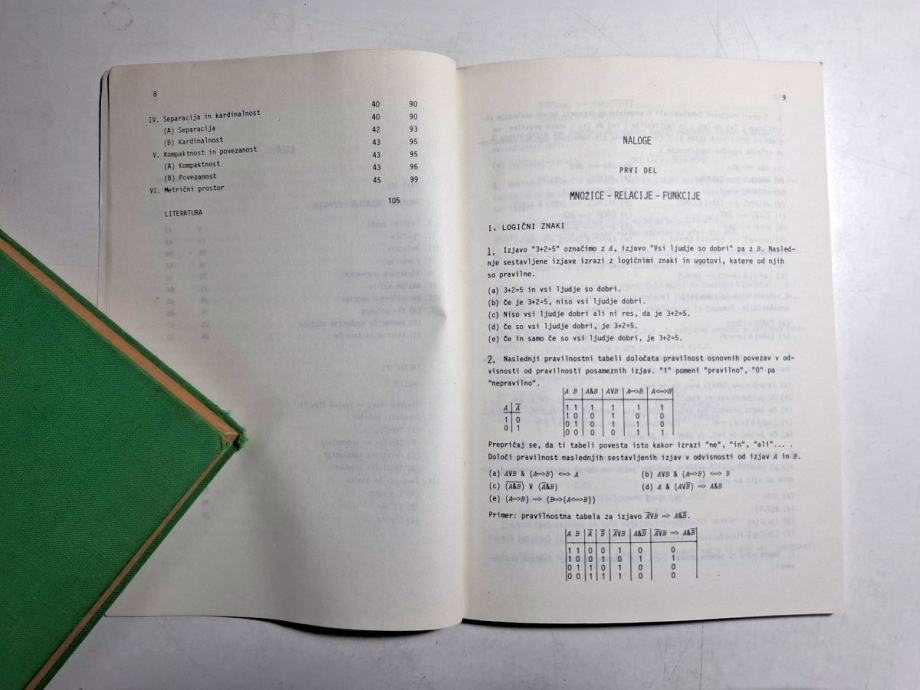 8
40 90
IV. Separacija in kardinalnost 40 90
(A) Separacija 42 93
(B) Kardinalnost 43 95
V. Kompaktnost in povezanost 43 95
(A) Kompaktnost 43 96
(B) Povezanost 45 99
VI. Metrični prostor
105
LITERATURA
9
NALOGE
PRVI DEL
MNOŽICE - RELACIJE - FUNKCIJE
I. LOGIČNI ZNAKI
1. Izjavo "3+2=5" označimo z A, izjavo "Vsi ljudje so dobri" pa z B. Nasled-
nje sestavljene izjave izrazi z logičnimi znaki in ugotovi, katere od njih
so pravilne.
(a) 3+2=5 in vsi ljudje so dobri.
(b) Če je 3+2=5, niso vsi ljudje dobri.
(c) Niso vsi ljudje dobri ali ni res, da je 3+2=5.
(d) Če so vsi ljudje dobri, je 3+2=5.
(e) Če in samo če so vsi ljudje dobri, je 3+2=5.
2. Naslednji pravilnostni tabeli določata pravilnost osnovnih povezav v od-
visnosti od pravilnosti posameznih izjav. "1" pomeni "pravilno", "0" pa
"nepravilno".
A A̅
1 0
0 1
A B A&B A∨B A=>B A<=>B
1 1 1 1 1 1
1 0 0 1 0 0
0 1 0 1 1 0
0 0 0 0 1 1
Prepričaj se, da ti tabeli povesta isto kakor izrazi "ne", "in", "ali"... .
Določi pravilnost naslednjih sestavljenih izjav v odvisnosti od izjav A in B.
(a) A∨B & (A=>B) <=> A (b) A∨B & (A=>B) <=> B
(d) A & (A∨B̅) => A&B
(e) (A=>B) => (B=>(A<=>B))
Primer: pravilnostna tabela za izjavo A̅∨B => A&B̅.
A B A̅ B̅ A̅∨B A&B̅ A̅∨B => A&B̅
1 1 0 0 1 0 0
1 0 0 1 0 1 1
0 1 1 0 1 0 0
0 0 1 1 1 0 0